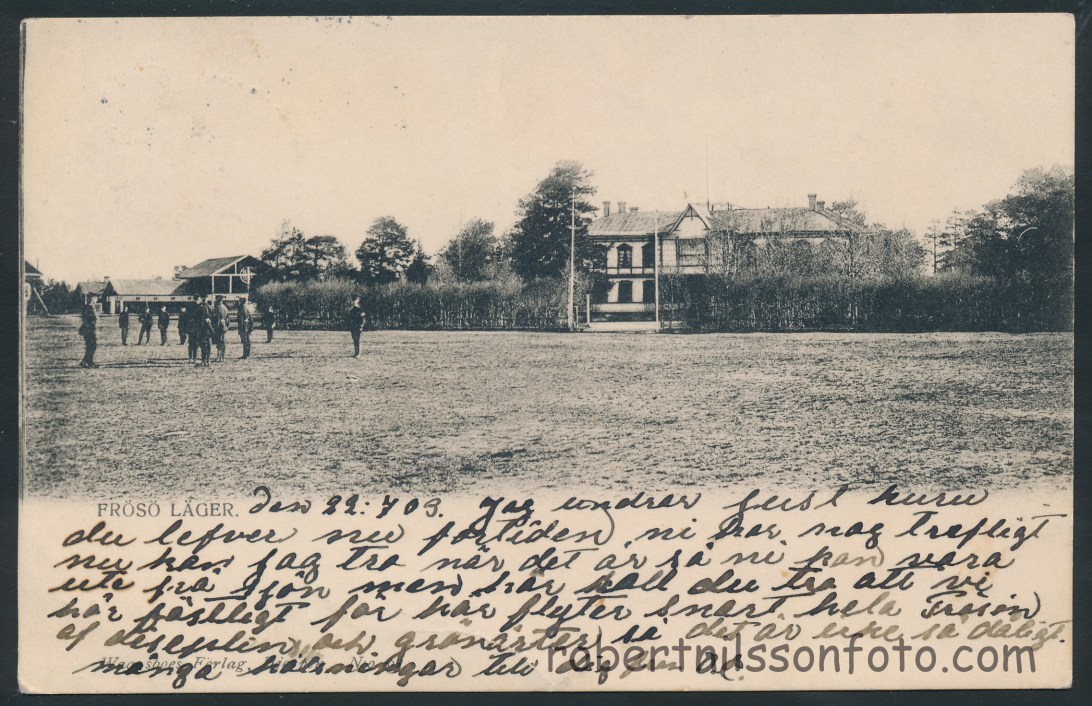 FRÖSÖ LÄGER. den 22:7 03. Jag undrar just huru
du lefver nu förtiden, ni har nog trefligt
nu kan jag tro när det är så ni kan vara
ute på sjön men här skall du tro att vi
här fästligt för här flyter snart hela Frösön
af diseplin och grönärter så det är icke så dåligt.
Förlag,
många hälsningar till dig från
robertnilssonfoto.com